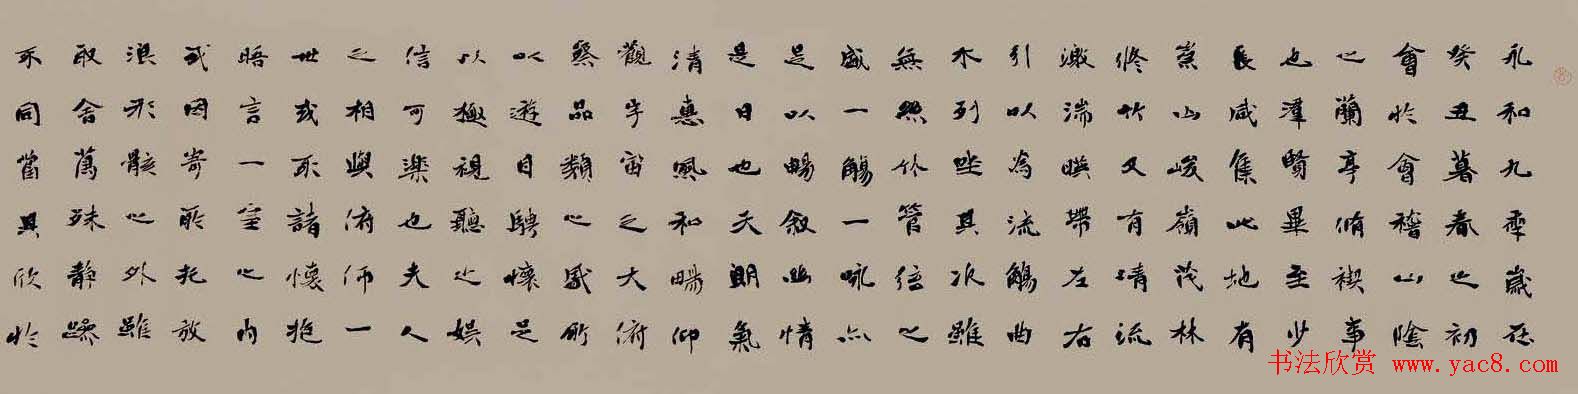 永和九年歲在
癸丑暮春之初
會於會稽山陰
之蘭亭脩禊事
也群賢畢至少
長咸集此地有
崇山峻嶺茂林
修竹又有清流
激湍暎帶左右
引以為流觴曲
水列坐其次雖
無絲竹管弦之
盛一觴一詠亦
足以暢敘幽情
是日也天朗氣
清惠風和暢仰
觀宇宙之大俯
察品類之盛所
以遊目騁懷足
以極視聽之娛
信可樂也夫人
之相與俯仰一
世或取諸懷抱
晤言一室之內
或因寄所托放
浪形骸之外雖
取舍萬殊靜躁
不同當其欣於
书法欣赏 www.yac8.com